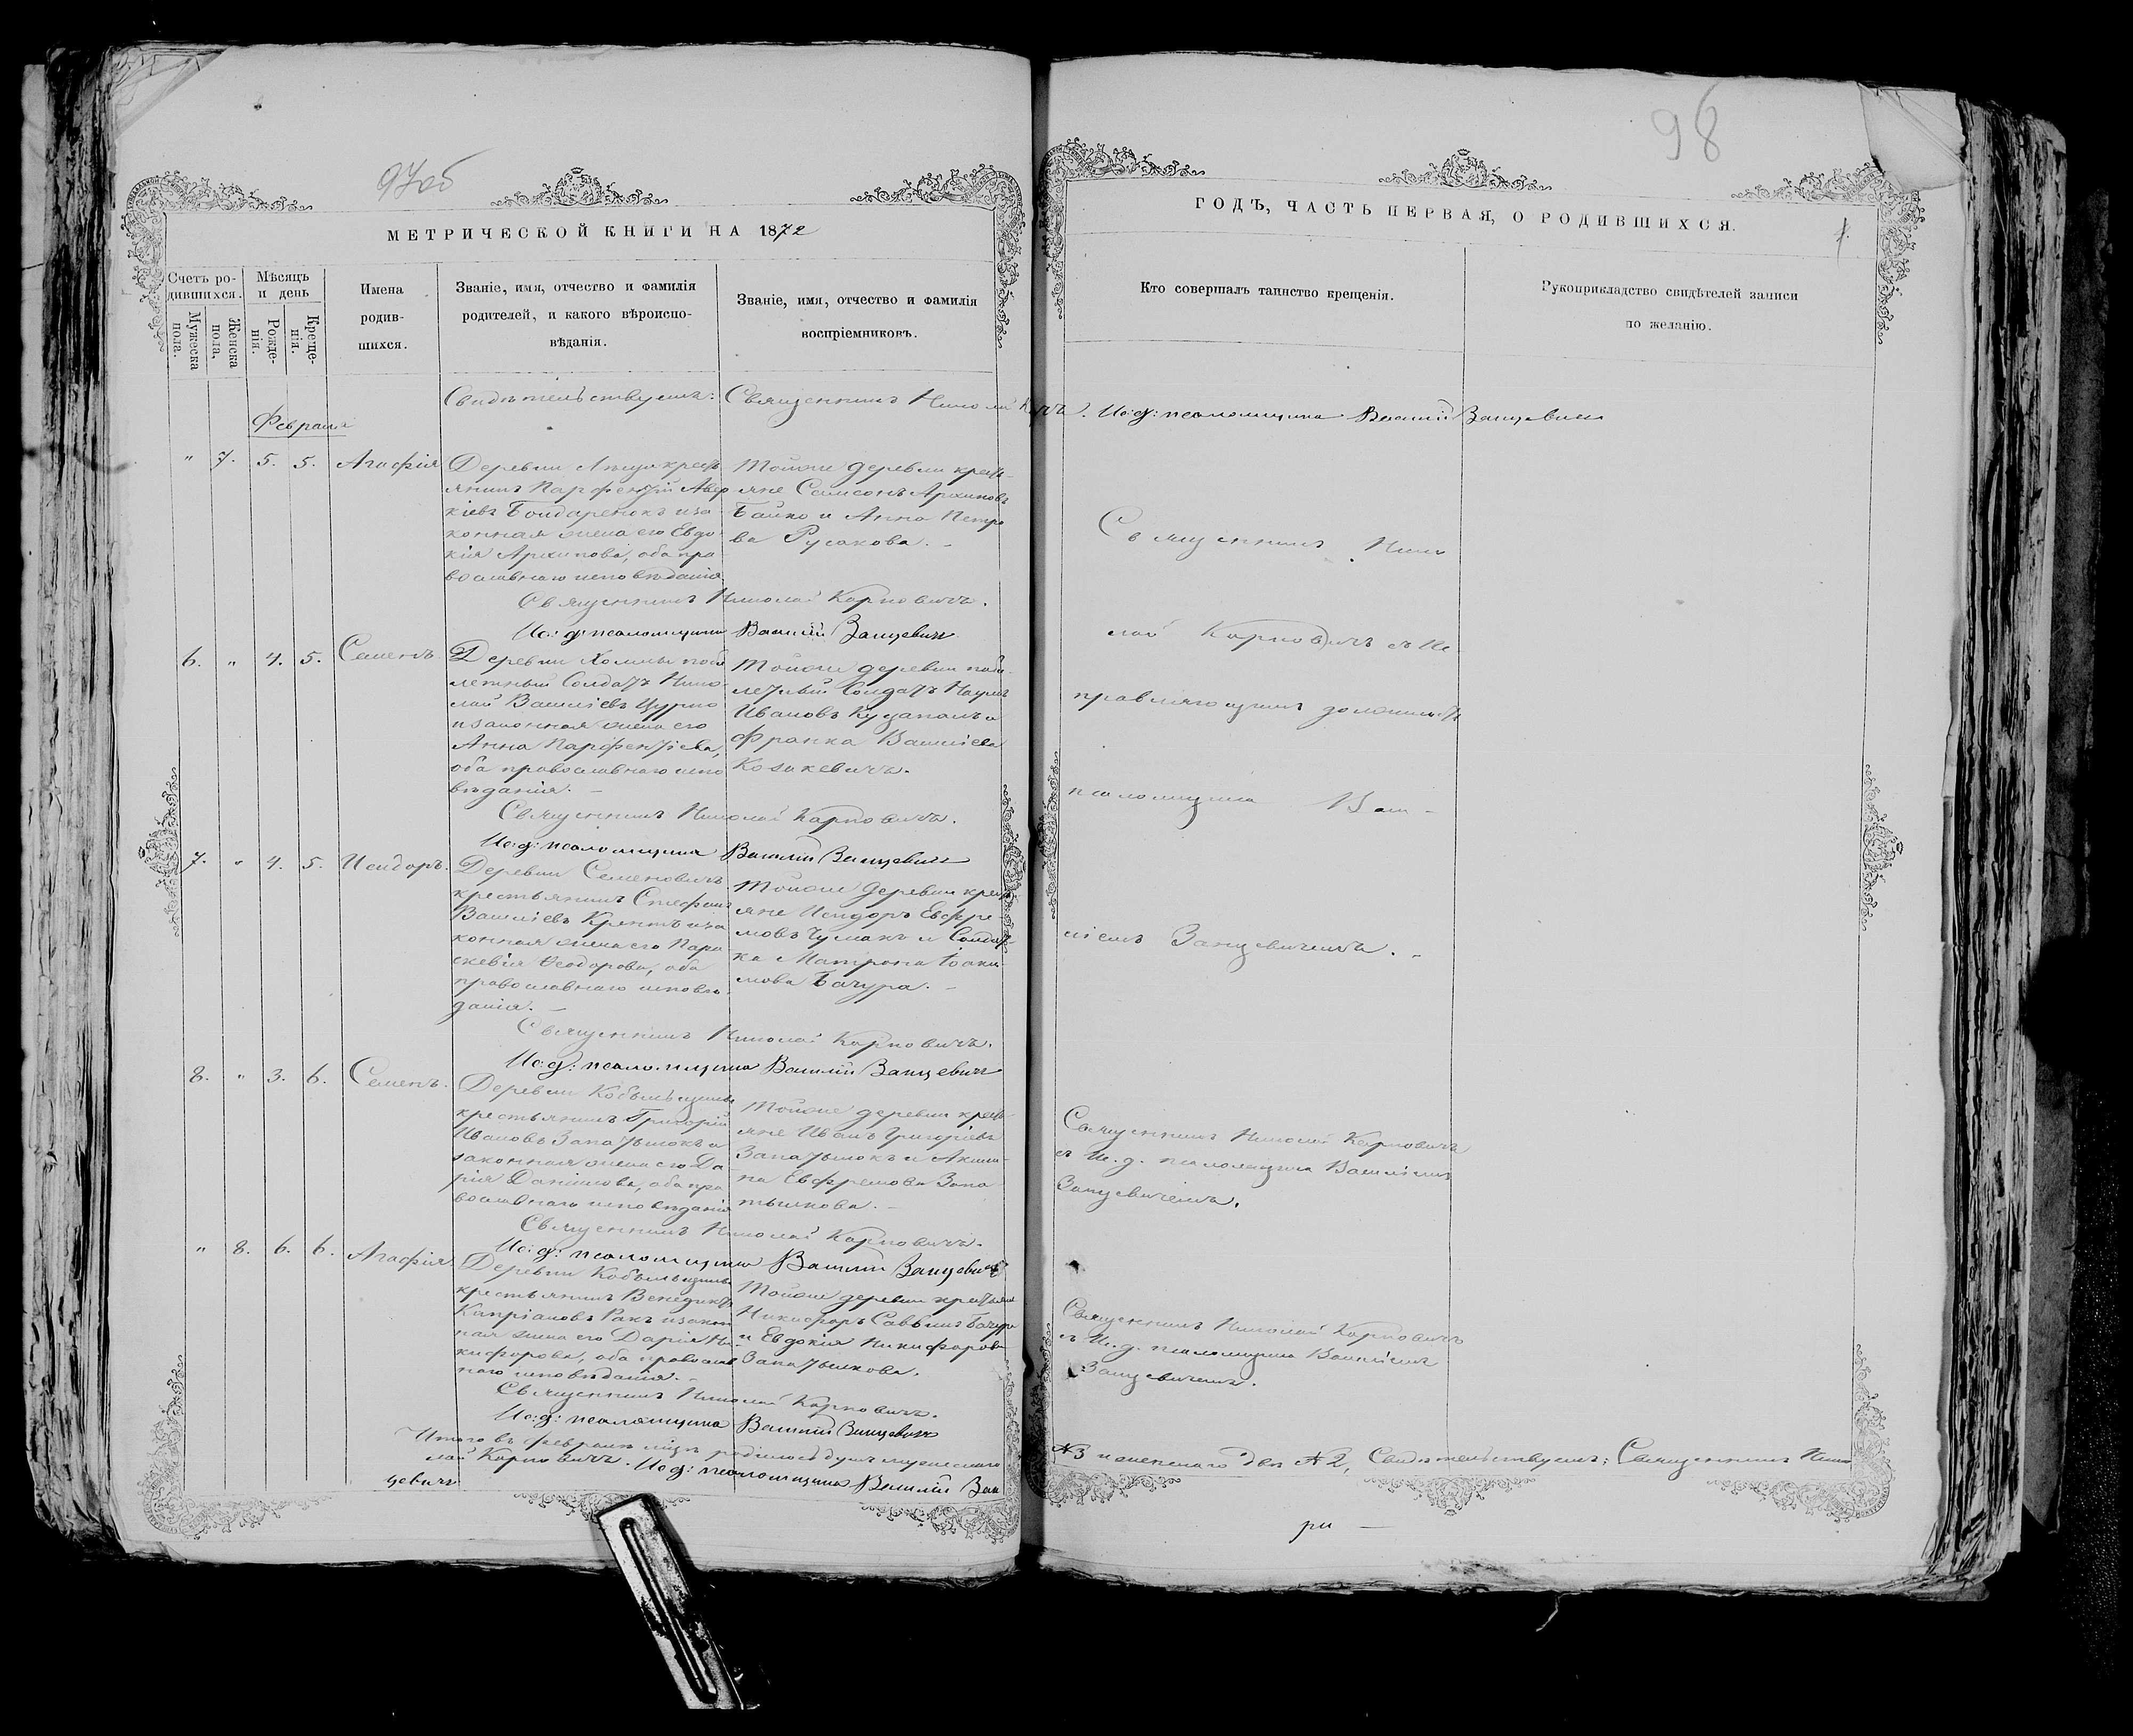 97об
98
МЕТРИЧЕСКОЙ КНИГИ НА 1872
ГОДЪ, ЧАСТЬ ПЕРВАЯ, О РОДИВШИХСЯ.
Счетъ ро-
дившихся.
Мужеска
пола.
Женска
пола,
Мѣсяцъ
и день
Рожде-
нія.
Креще-
нія.
Имена
родив-
шихся.
Званіе, имя, отчество и фамилія
родителей, и какого вѣроиспо-
вѣданія.
Званіе, имя, отчество и фамилія
воспріемниковъ.
Кто совершалъ таинство крещенія.
Рукоприкладство свидѣтелей записи
по желанію.
Свидѣтельствуемъ: Священникъ Николай И: д: псаломщика Василій Занцевичъ
Февраля
" 7. 5. 5. Агафія
Деревни крест
янинъ Парфентій Авер
кіевъ Бондаренокъ и за
конная жена его Евдо
кія Архипова, оба пра
вославнаго исповѣданія
Тойже деревни крест-
яне Самсонъ Архиповъ
Байко и Анна Петро
ва Русакова. -
Священникъ Нико
Священникъ Николай Карповичъ.
Ис: д: псаломщика Василій Занцевичъ
6. " 4. 5. Семенъ
Деревни солдатъ Нико
лай Васильевъ Цурко
и законная жена его
Анна Парфентіева,
оба православнаго испо
вѣданія. -
Тойже деревни
солдатъ Наумъ
Ивановъ и
Франка Васильева
Козакевичъ.
лай Карповичъ съ Ис
правляющимъ должность
псаломщика Васи-
Священникъ Николай Карповичъ.
Ис: д: псаломщика Василій Занцевичъ
7. " 4. 5. Исидоръ.
Деревни Семеновичъ
крестьянинъ Стефанъ
Васильевъ и за
конная жена его Пара
скевія Ѳеодорова, оба
православнаго исповѣ
данія. -
Тойже деревни крест
яне Исидоръ Евфре
мовъ Чумакъ и Солдат-
ка Матрона Іоаки-
мова Бачура. -
ліемъ Занцевичемъ. -
Священникъ Николай Карповичъ.
Ис: д: псаломщика Василій Занцевичъ
8. " 3. 6. Семенъ.
Деревни Кобыльщины
крестьянинъ Григорій
Ивановъ Запатылокъ и
законная жена его Да-
рія Данилова, оба пра
вославнаго исповѣданія
Тойже деревни крест-
яне Иванъ Григоріевъ
Запатылокъ и Акили-
на Евфремова Запа
тылкова. -
Священникъ Николай Карповичъ
съ И. д. псаломщика Василіемъ
Занцевичемъ.
Священникъ Николай Карповичъ.
Ис: д: псаломщика Василій Занцевичъ
" 8. 6. 6. Агафія
Деревни Кобыльщины
крестьянинъ Венедиктъ
Капріановъ Ракъ и закон
ная жена его Дарія Ни
кифорова, оба православ
наго исповѣданія. -
Тойже деревни крестьяне
Никифоръ Саввинъ Бачура
и Евдокія Никифорова
Запатылкова.
Священникъ Николай Карповичъ
съ И. д. псаломщика Василіемъ
Занцевичемъ.
Священникъ Николай Карповичъ.
Ис: д: псаломщика Василій Занцевичъ
Итого въ февралѣ мцѣ родилось душъ мужескаго
№3 и женскаго два №2, Свидѣтельствуемъ: Священникъ Нико
лай Карповичъ. Ис: д: псаломщика Василій Зан
цевичъ
ри —